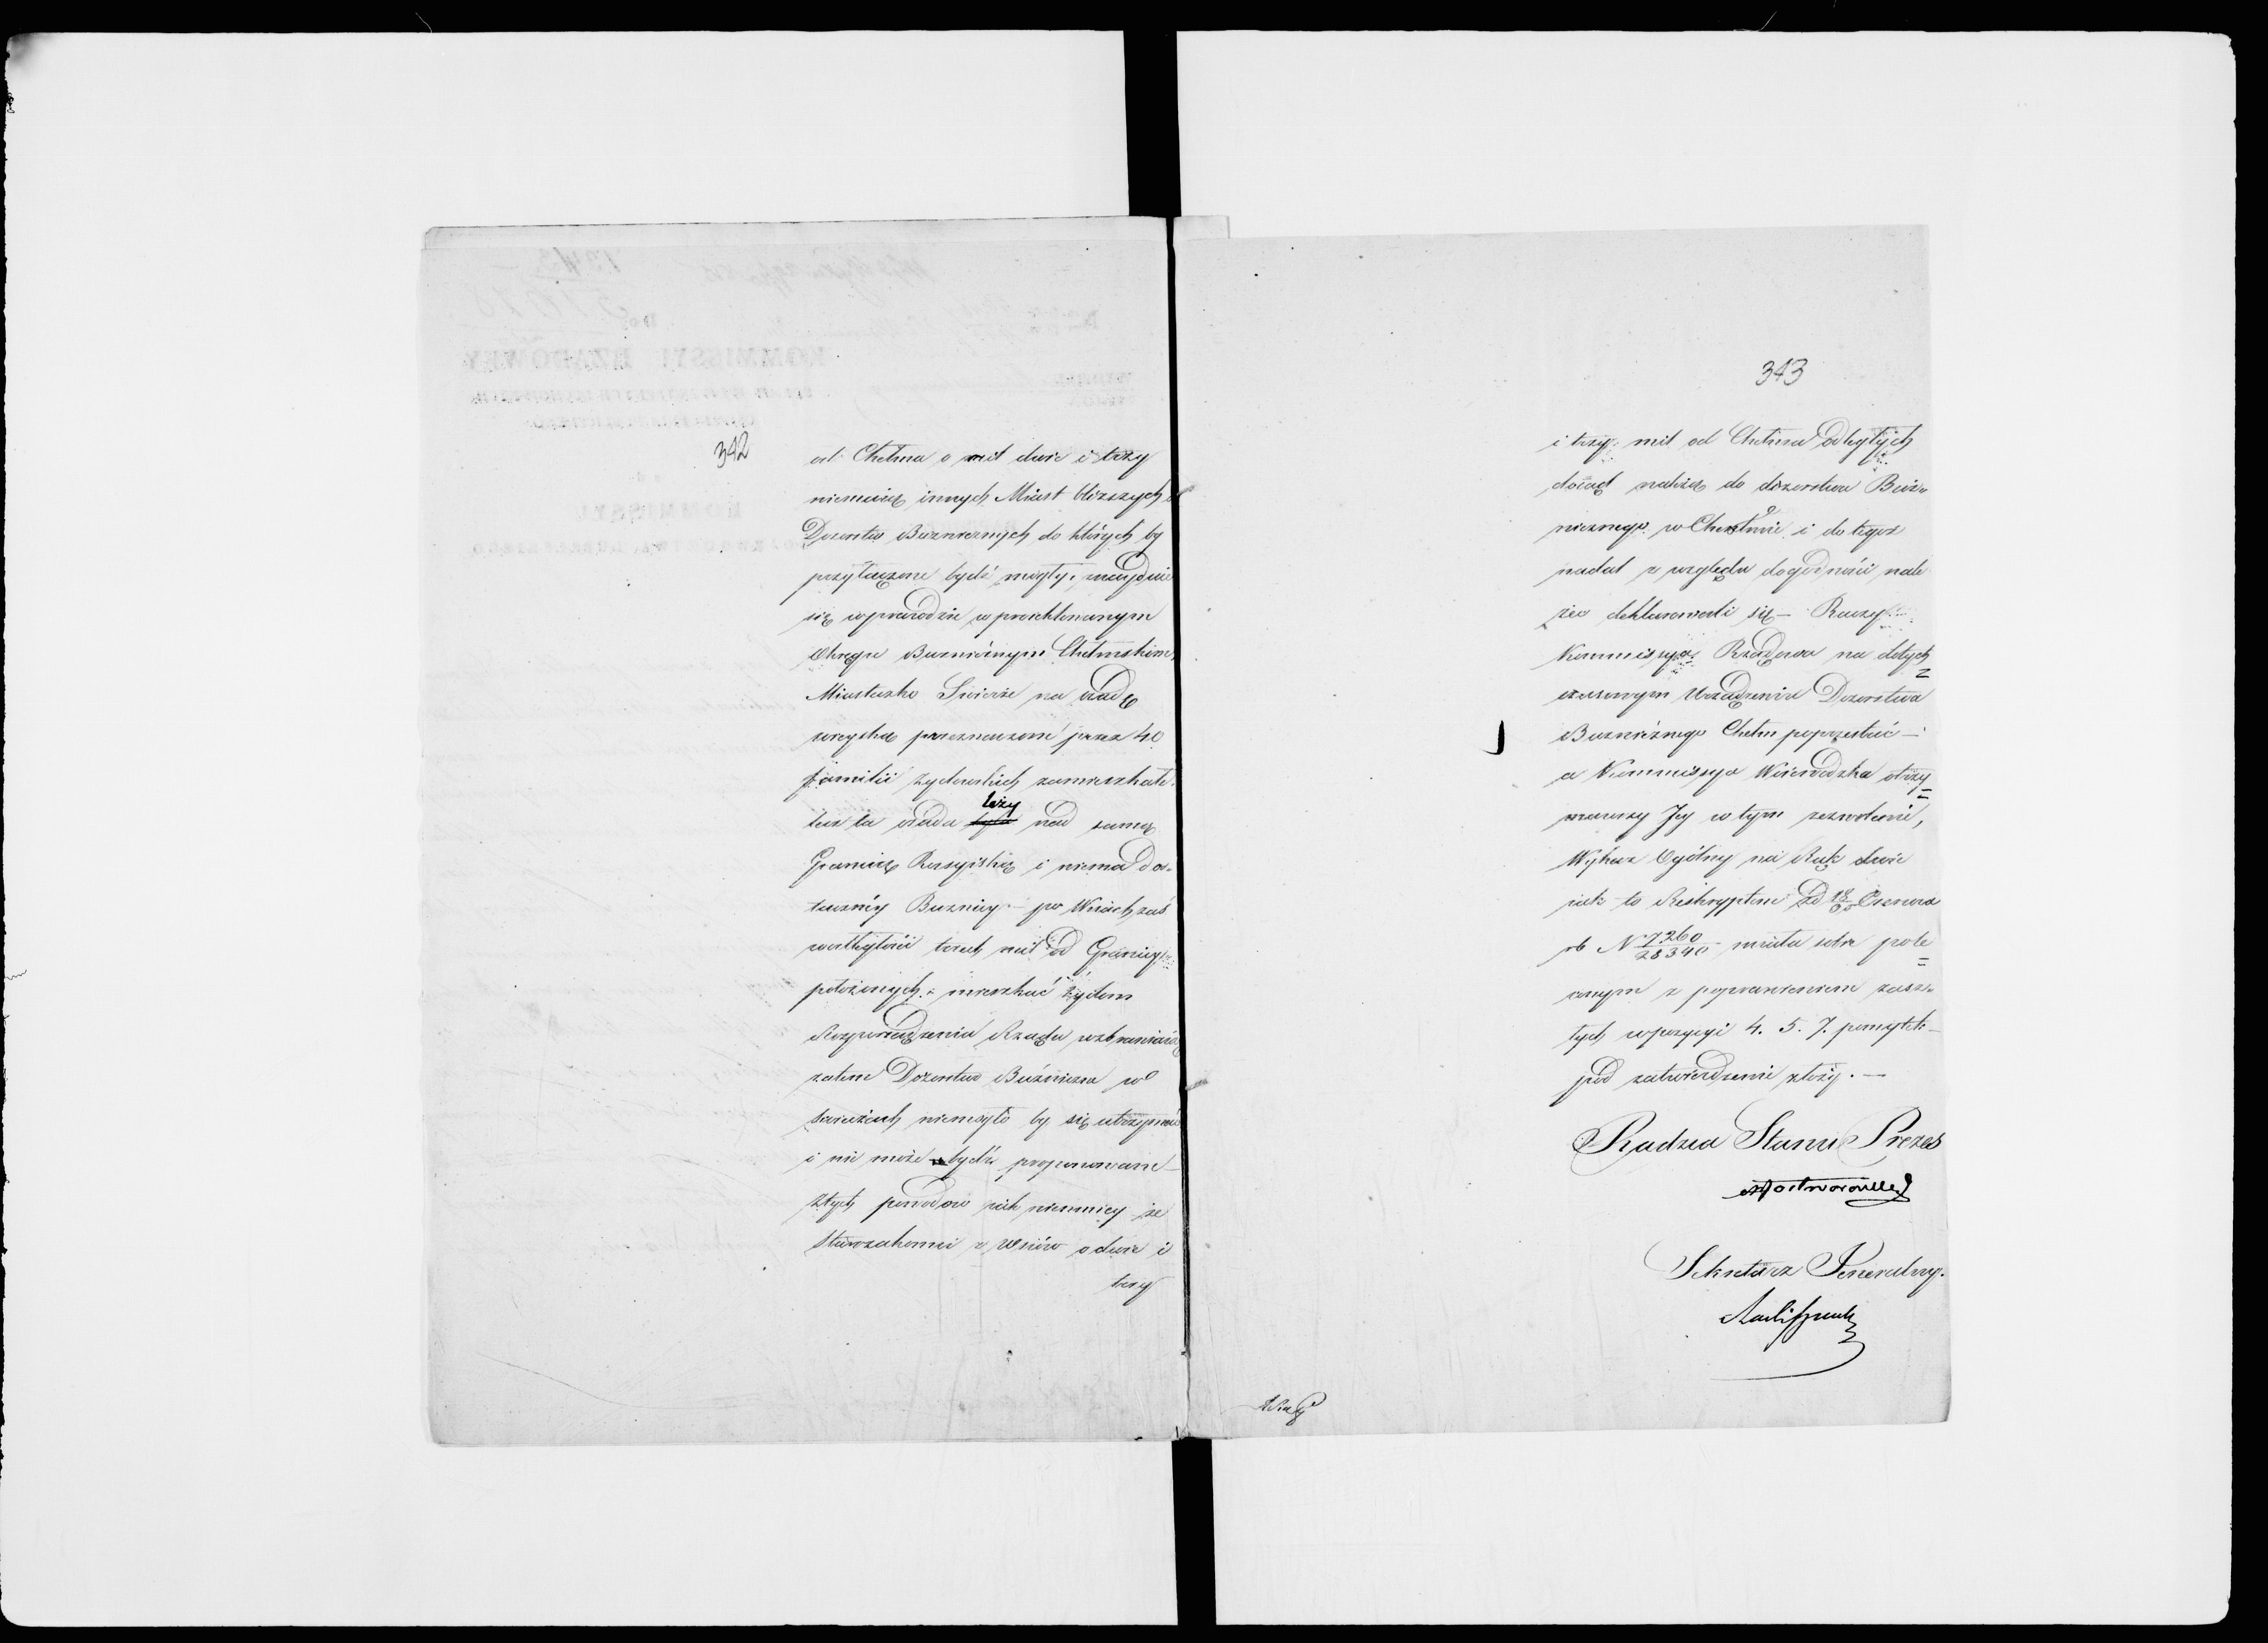 342
od Chełma o mil dwie i trzy
niemaią innych Miast bliższych i
Dozorstw Bużnicznych do których by
przyłączone bydź mogły, znayduie
się wprawdzie w proiektowanym
Okręgu Bużnicznym Chełmskim,
Miasteczko Swierże na osadę
wieyską przeznaczone przez 40
familii żydowskich zamieszkałe
lecz ta osada leży nad samą
Granicą Rossyiską i niema dos-
taczney Bużnicy – po Wsiach zaś
w odległości trzech mil od Granicy
położonych mieszkać żydom
Rozporządzenia Rządu wzbraniaią
zatem Dozorstwo Bużniczne w
Swierżach niemogło by się utrzymać
i nie może bydź proponowane
z tych powodów iak niemniey że
Starozakonni z Wsiów o dwie i
trzy
343
i trzy mil od Chełma odległych
dotąd należą do dozorstwa Buż-
nicznego w Chełmie i do tegoż
nadal z względu dogodności nale
żeć deklarowali się – Raczy
Kommissya Rządowa na dotych
czasowym Urządzeniu Dozorstwa
Bużnicznego Chełm poprzestać –
a Kommissya Wojewódzka otrzy
mawszy Jey w tym zezwolenie,
Wykaz Ogólny na Rok
iak to Reskryptem Czerwca
rb N 7260/28340 miała sobie pole
conym z poprawieniem zasz-
łych w pozycyi 4. 5. 7. pomyłek
pod zatwierdzenie złoży. —
Radzca Stanu Prezes
Sekretarz Generalny.